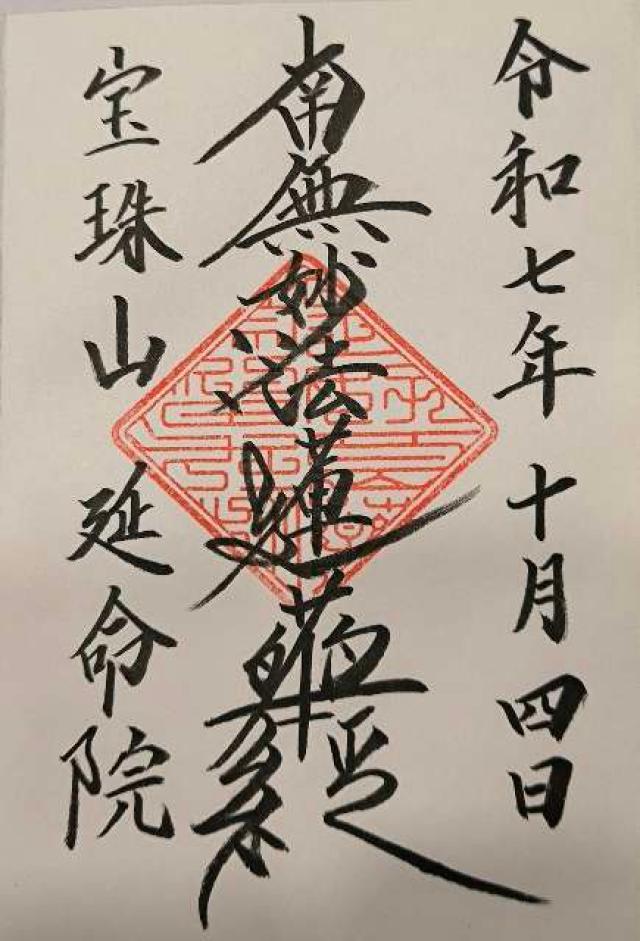 令和七年十月四日
南無妙法蓮華経
宝珠山 延命院